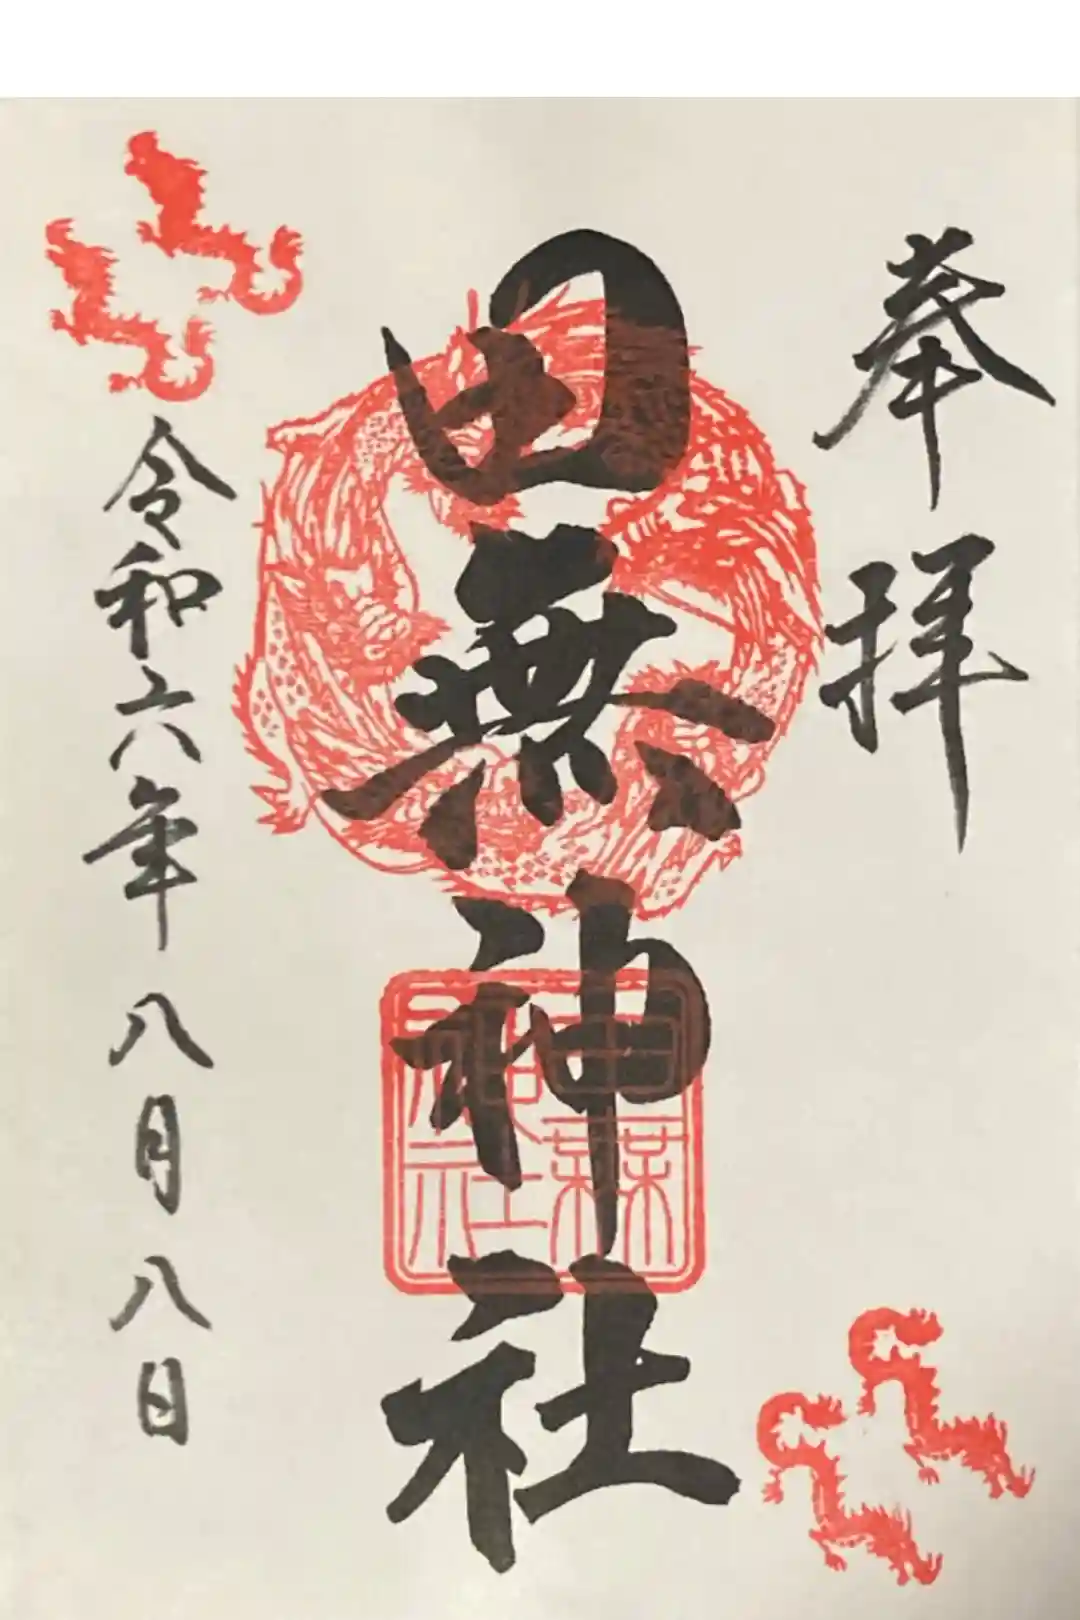 奉拝
田無神社
田無神社
令和六年八月八日